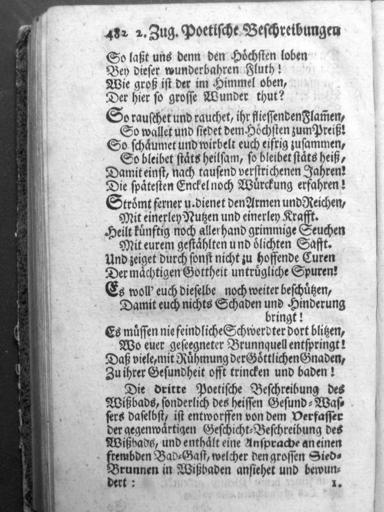 482 2. Zug. Poetische Beschreibungen
So laßt uns denn den Höchsten loben
Bey dieser wunderbahren Fluth!
Wie groß ist der im Himmel oben,
Der hier so grosse Wunder thut?
So rauschet und rauchet, ihr fliessenden Flam̃en,
So wallet und siedet dem Höchsten zum Preiß!
So schäumet und wirbelt euch eifrig zusammen,
So bleibet stäts heilsam, so bleibet stäts heiß,
Damit einst, nach tausend verstrichenen Jahren!
Die spätesten Enckel noch Würckung erfahren!
Strömt ferner u. dienet den Armen und Reichen,
Mit einerley Nutzen und einerley Krafft.
Heilt künftig noch allerhand grimmige Seuchen
Mit eurem gestählten und ölichten Safft.
Und zeiget durch sonst nicht zu hoffende Curen
Der mächtigen Gottheit untrügliche Spuren!
Es woll' euch dieselbe noch weiter beschützen,
Damit euch nichts Schaden und Hinderung
bringt!
Es müssen nie feindliche Schwerdter dort blitzen,
Wo euer geseegneter Brunnquell entspringt!
Daß viele, mit Rühmung der Göttlichen Gnaden,
Zu ihrer Gesundheit offt trincken und baden!
Die dritte Poetische Beschreibung des
Wißbads, sonderlich des heissen Gesund-Was-
sers daselbst, ist entworffen von dem Verfasser
der gegenwärtigen Geschicht-Beschreibung des
Wißbads, und enthält eine Ansprache an einen
frembden Bad-Gast, welcher den grossen Sied-
Brunnen in Wißbaden ansiehet und bewun-
dert: 1.